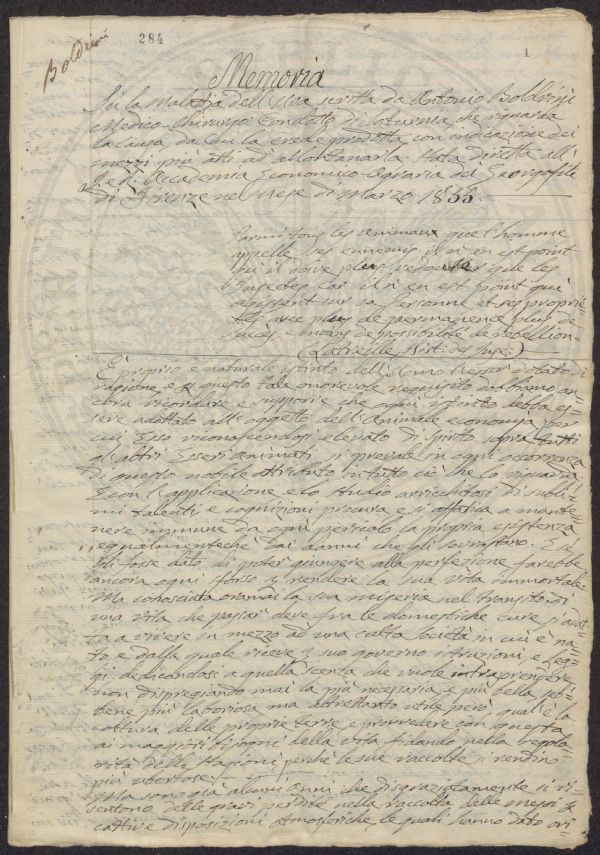 Boldrini
284
1
Memoria
Su la Malattia dell'Uva scritta da Antonio Boldrini
Medico-Chirurgo Condotto di Saturnia che riguarda
la causa, da cui la crede prodotta con indicazione dei
mezzi più atti ad allontanarla stata diretta all'
I. e R. Accademia Economico-Agraria dei Georgofili
di Firenze nel mese di Marzo 1855.
Parmi tous les animaux que l'homme
appelle ses ennemis il n'en est point
qu'il doive plus redouter que les
Insectes car il n'en est point qui
agissent sur sa personne et ses proprie=
tés avec plus de permanence plus de
succès et moins de possibilité de rebellion.
(Latreille Hist: des Inse:)
È proprio e naturale istinto dell'Uomo l'esser dotato di
ragione, e a questo tale onorevole requisito dobbiamo an=
cora ricordare e supporre che ogni istinto debba es=
sere adattato all'oggetto dell'Animale economia, per
cui Esso riconoscendosi elevato di spirito sopra tutti
gl'altri Esseri animati si prevale in ogni occorrenza
di questo nobile attributo in tutto ciò che lo riguarda
E con l'applicazione, e lo studio arricchitosi di subli=
mi talenti e cognizioni procura e si affatica a mante=
nere immune da ogni pericolo la propria esistenza
egualmente che dai danni che gli sovrastano. E se
gli fosse dato di poter giungere alla perfezione farebbe
ancora ogni sforzo a rendere la sua vita immortale
Ma conosciuta oramai la sua miseria nel transito di
una vita che passar deve fra le domestiche cure si adat=
ta a vivere in mezzo ad una culta Società in cui è na=
to, e dalla quale riceve il suo governo istruzioni, e leg=
gi dedicandosi a quella scienza che vuole intraprendere
non dispregiando mai la più necessaria, e più bella seb=
bene più laboriosa ma altrettanto utile però qual'è la
coltura delle proprie terre, e provvedere con questa
ai maggiori bisogni della vita fidando nella regola=
rità delle stagioni perchè le sue raccolte si rendino
più ubertose.
Ma sono già alcuni anni che disgraziatamente si ri=
sentono delle gravi perdite nella raccolta delle messi
cattive disposizioni atmosferiche le quali hanno dato ori=